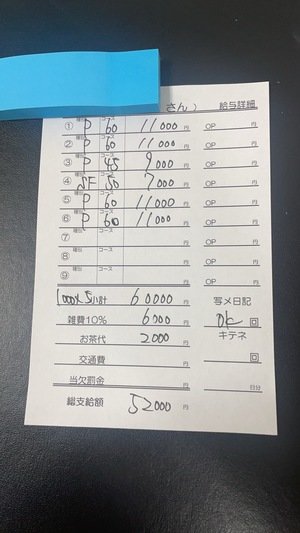 さん) 給与詳細
① 種別 P コース 60 11000 円 OP 円
② 種別 P コース 60 11000 円 OP 円
③ 種別 P コース 45 9000 円 OP 円
④ 種別 SF コース 50 7000 円 OP 円
⑤ 種別 P コース 60 11000 円 OP 円
⑥ 種別 P コース 60 11000 円 OP 円
⑦ 種別 コース 円 OP 円
⑧ 種別 コース 円 OP 円
⑨ 種別 コース 円 OP 円
1000×5 小計 60000 円 写メ日記
雑費10% 6000 円 OK 回
お茶代 2000 円 キテネ
交通費 円 回
当欠罰金 円 日分
総支給額 52000 円